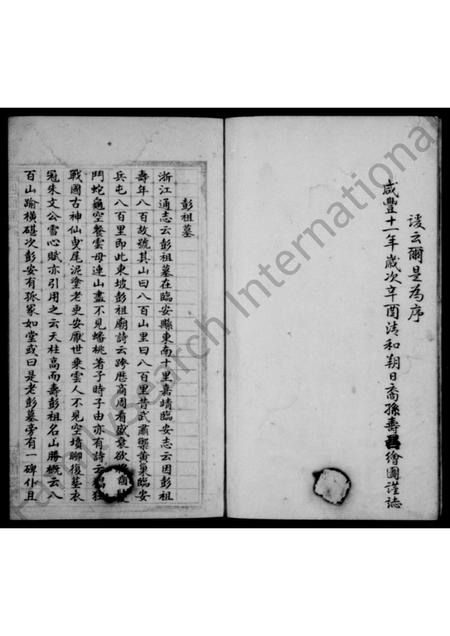 諼云爾是為序
咸豐十一年歲次辛酉清和朔日裔孫壽繪圖謹誌
彭祖墓
浙江通志云彭祖墓在臨安縣東南十里嘉靖臨安志云因彭祖
壽年八百故號其山曰八百山里曰八百里昔武肅禦黃巢臨安
兵屯八百里即此東坡彭祖廟詩云跨歷商周看盛衰欲將
鬥蛇龜空餐雲母連山盡不見蟠桃著子時子由亦有詩云
戰國古神仙曳尾泥塗老更安厭世乘雲人不見空墳聊復葬衣
冠朱文公雪心賦亦引用之云天柱高而壽彭祖名山勝概云八
百山踰橫碪次彭安有孤冢如堂或曰是老彭墓旁有一碑仆且
Research International